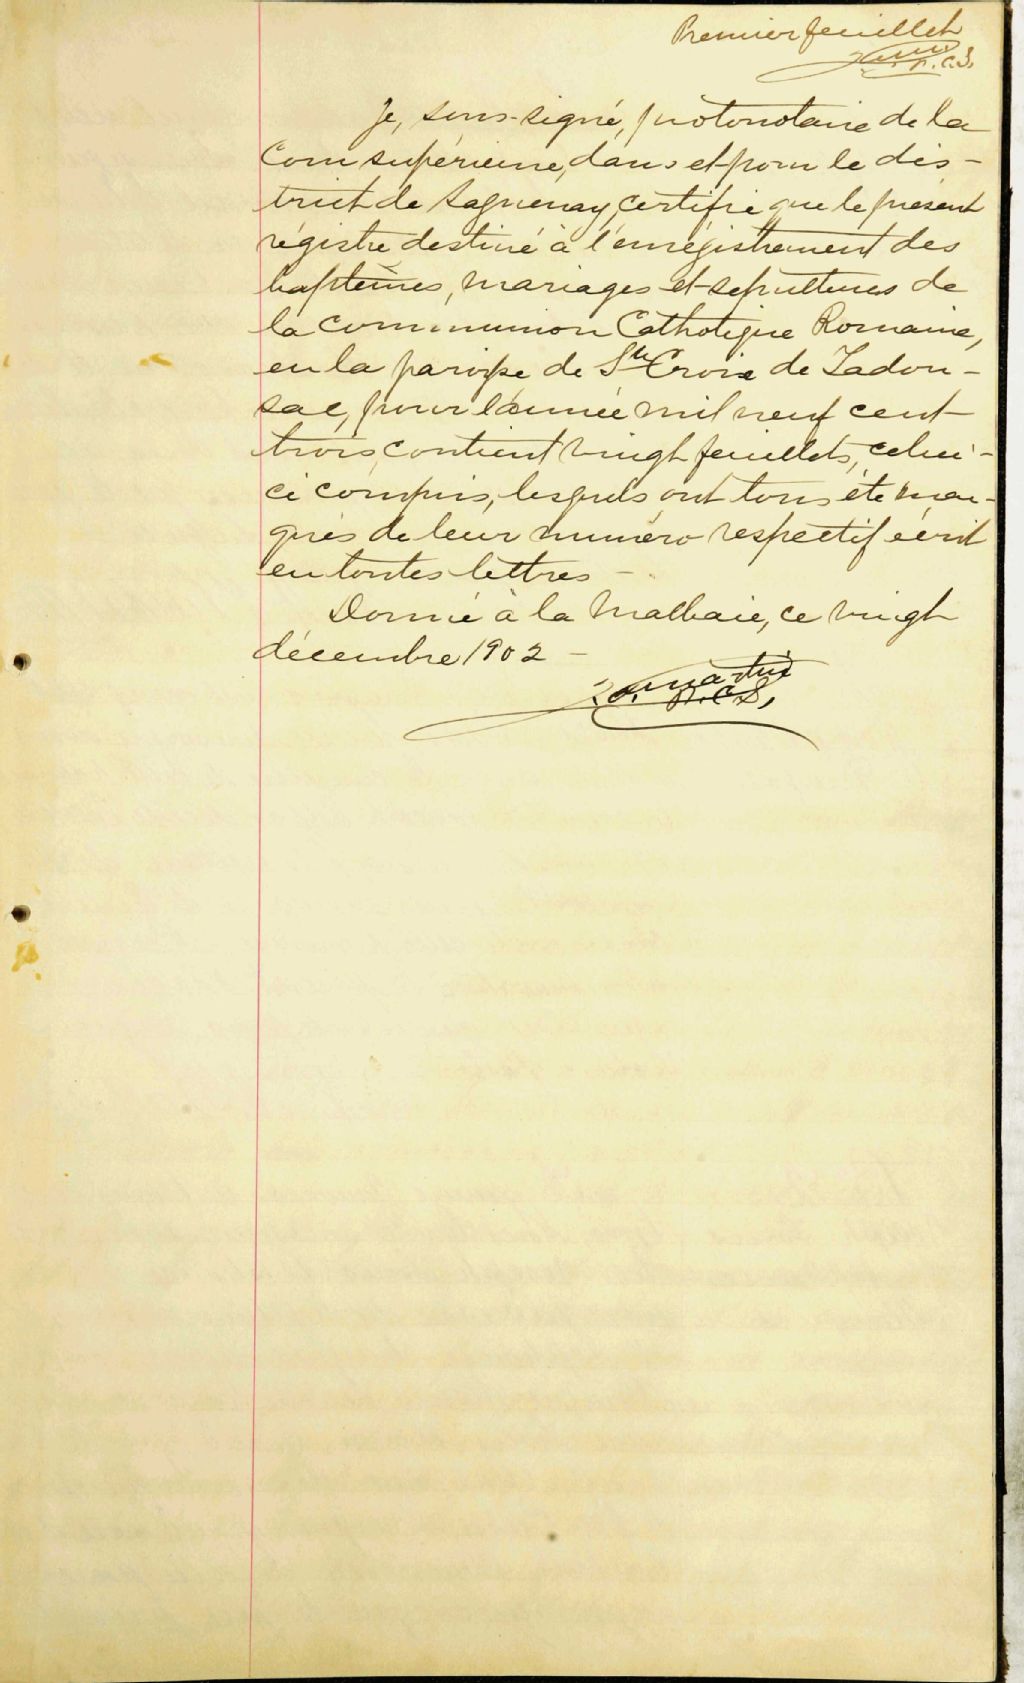 Premier feuillet
P.C.S.
Je, sous-signé, protonotaire de la
Cour supérieure, dans et pour le dis-
trict de Saguenay, certifie que le présent
régistre destiné à l'enrégistrement des
baptêmes, mariages et sépultures de
la Communion Catholique Romaine,
en la paroisse de Ste Croix de Tadou-
sac, pour l'année mil neuf cent
trois, contient vingt feuillets, celui-
ci compris, lesquels ont tous été mar-
qués de leur numéro respectif écrit
en toutes lettres -
Donné à la Malbaie, ce vingt
décembre 1902 -
P.C.S.